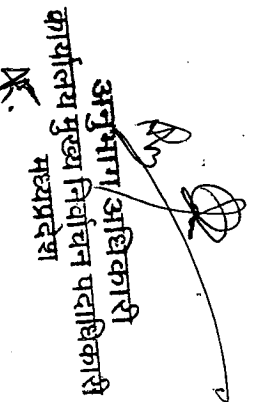 अनुभाग अधिकारी
कार्यालय मुख्य निर्वाचन पदाधिकारी
मध्यप्रदेश